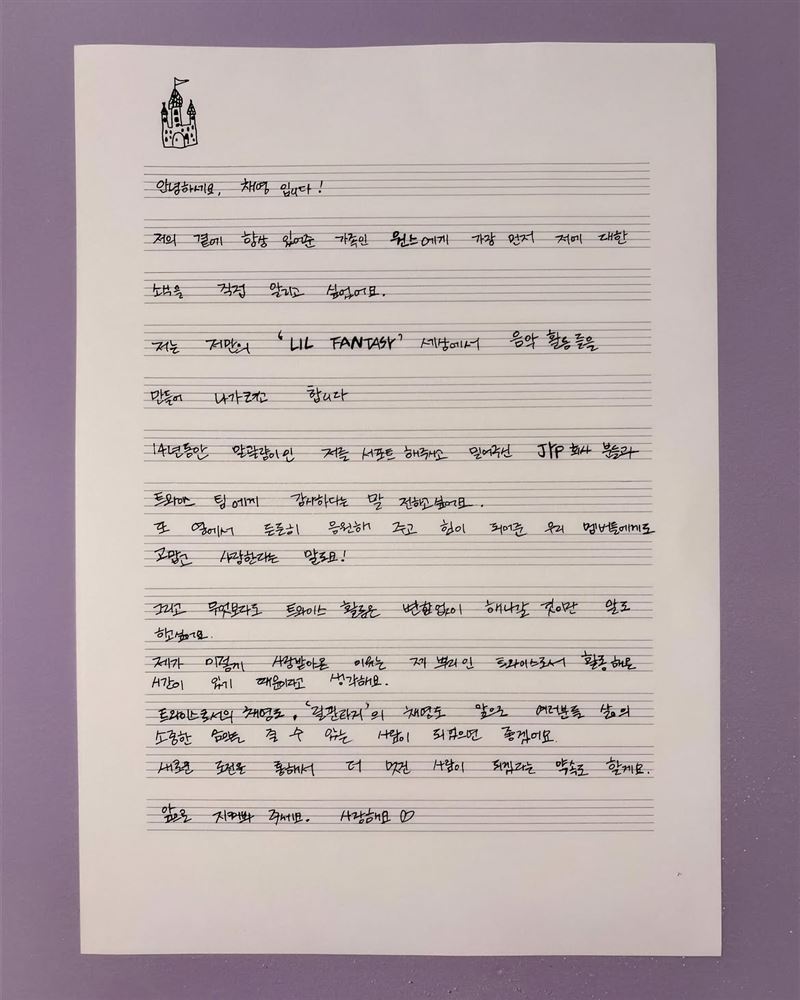 안녕하세요, 채영 입니다!
저의 곁에 항상 있어준 가족인 원스에게 가장 먼저 저에 대한
소식을 직접 알리고 싶었어요.
저는 저만의 'LIL FANTASY' 세상에서 음악 활동들을
만들어 나가려고 합니다
14년동안 말괄량이인 저를 서포트 해주시고 믿어주신 JYP 회사 분들과
트와이스 팀에게 감사하다는 말 전하고싶어요.
또 옆에서 든든히 응원해 주고 힘이 되어준 우리 멤버들에게도
고맙고 사랑한다는 말로요!
그리고 무엇보다도 트와이스 활동은 변함없이 해나갈 것이란 말도
하고싶어요.
제가 이렇게 사랑받아온 이유는 제 뿌리인 트와이스로서 활동해온
시간이 있기 때문이라고 생각해요.
트와이스로서의 채영도, '릴판타지'의 채영도 앞으로 여러분들 삶의
소중한 을 줄 수 있는 사람이 되었으면 좋겠어요.
새로운 도전을 통해서 더 멋진 사람이 되겠다는 약속도 할게요.
앞으로 지켜봐 주세요. 사랑해요 ♡